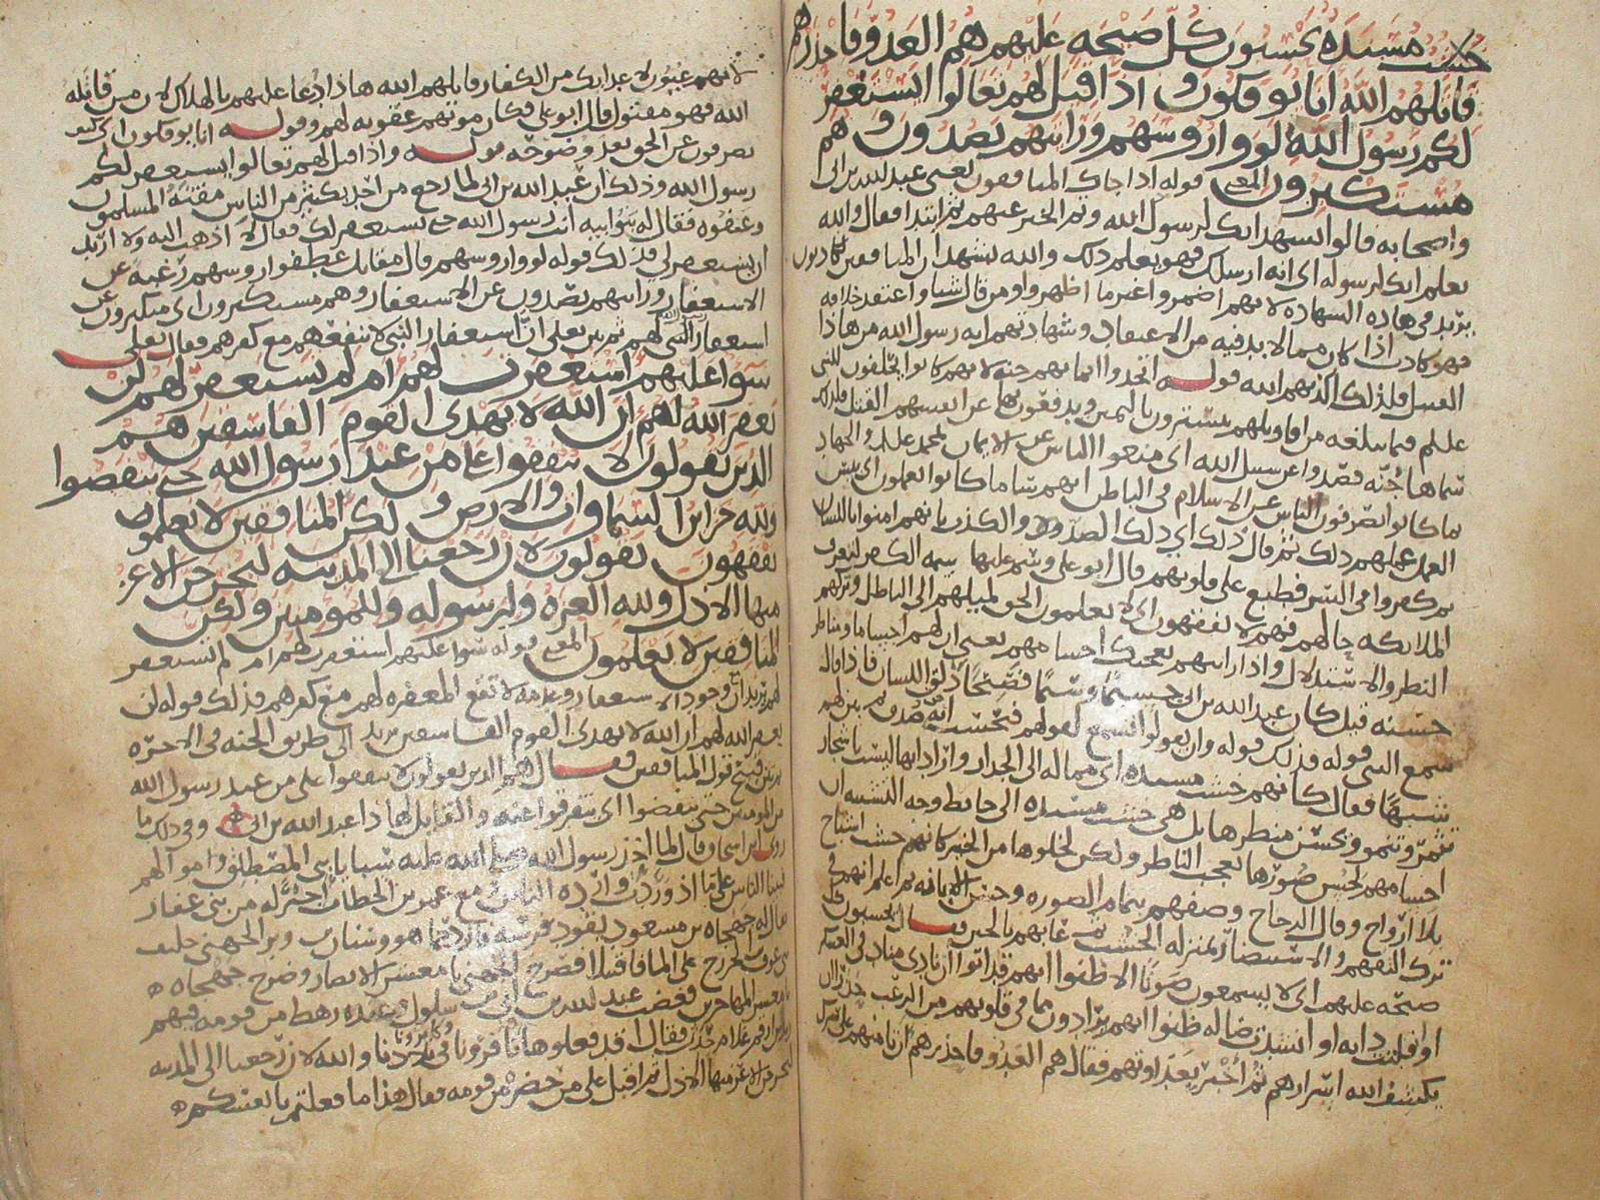 خشب مسندة يحسبون كل صيحة عليهم هم العدو فاحذرهم
قاتلهم الله انا يوفكون واذا قيل لهم تعالوا يستغفر
لكم رسول الله لووا روسهم ورايتهم يصدون وهم
مستكبرون المعنى قوله اذا جاك المنافقون يعني عبد الله بن ابي
واصحابه قالوا نشهد انك لرسول الله وتم الخبر عنهم ثم ابتدا فقال والله
يعلم انك لرسوله اي انه ارسلك فهو يعلم ذلك والله يشهد ان المنافقين لكاذبون
يريد في هاذه الشهاده لانهم اضمروا غير ما اظهروا ومن قال شيا واعتقد خلافه
فهو كاذب اذا كان مما لا بد فيه من الاعتقاد وشهادتهم انه رسول الله من هاذا
القبيل فلذلك اكذبهم الله قوله اتخذوا ايمانهم جنه لانهم كانوا يحلفون للنبي
عليلم فيما يبلغه من اقاويلهم يستترون باليمين ويدفعون بها عن انفسهم القتل فلذلك
سماها جنه فصدوا عن سبيل الله اي منعوا الناس عن الايمان بمحمد عليلم والجهاد
بما كانوا يصرفون الناس عن الاسلام في الباطن انهم سا ما كانوا يعملون اي بيس
العمل عملهم ذلك ثم قال ذلك اي ذلك الصد والكذب بانهم امنوا باللسان
ثم كفروا في السر فطبع على قلوبهم قال ابو علي وسم عليها سمه الكفر لتعرف
الملايكه حالهم فهم لا يفقهون اي لا يعلمون الحق لميلهم الى الباطل وتركهم
النظر والاستدلال واذا رايتهم تعجبك اجسامهم يعني ان لهم اجساما ومناظر
حسنه قيل كان عبد الله بن ابي جسيما وسيما فصيحا ذلق اللسان فاذا قال
سمع النبي قوله فذلك قوله وان يقولوا تسمع لقولهم فتحسب انه صدق ثم بين لهم
شبها فقال كانهم خشب مسنده اي مماله الى الجدار واراد انها ليست باشجار
تثمر وتنمو ويحسن منظرها بل هي خشب مسنده الى حايط وجه التشبيه ان
اجسامهم لحسن صورها تعجب الناظر ولكن لخلوها من الخير كانهم خشب اشباح
بلا ارواح وقال الزجاج وصفهم بتمام الصوره وحسن الابانه ثم اعلم انهم في
ترك التفهم والاستبصار بمنزله الخشب ثم عابهم بالجبن فقال يحسبون كل
صيحه عليهم اي لا يسمعون صوتا الا ظنوا انهم قد اتوا ان نادى مناد في العسكر
او انفلتت دابه او انشدت ضاله ظنوا انهم يرادون مما في قلوبهم من الرعب
يكشف الله اسرارهم ثم اخبر بعداوتهم فقال هم العدو فاحذرهم ان تامنهم على سرك
لانهم عيون لاعدايك من الكفار قاتلهم الله هاذا دعا عليهم بالهلاك لان من قاتله
الله فهو مقتول قال ابو علي فكان موتهم عقوبه لهم وقوله انا يوفكون اي كيف
يصرفون عن الحق بعد وضوحه قوله واذا قيل لهم تعالوا يستغفر لكم
رسول الله وذلك ان عبد الله بن ابي لما رجع من احد بكثير من الناس مقته المسلمون
وعنفوه فقال له بنوا ابيه ائت رسول الله حتى يستغفر لك فقال لا اذهب اليه ولا اريد
ان يستغفر لي فذلك قوله لووا روسهم قال مقاتل عطفوا روسهم رغبه عن
الاستغفار ورايتهم يصدون عن الاستغفار وهم مستكبرون اي متكبرون عن
استغفار النبي لهم ثم بين تعالى ان استغفار النبي لا ينفعهم مع كفرهم فقال تعالى
سوا عليهم استغفرت لهم ام لم تستغفر لهم لن
يغفر الله لهم ان الله لا يهدي القوم الفاسقين هم
الذين يقولون لا تنفقوا على من عند رسول الله حتى ينفضوا
ولله خزاين السماوات والارض ولكن المنافقين لا يعلمون
يفقهون يقولون لان رجعنا الى المدينه ليخرجن الاعز
منها الاذل ولله العزه ولرسوله وللمومنين ولكن
المنافقين لا يعلمون المعنى قوله سوا عليهم استغفرت لهم ام لم تستغفر
لهم يريد ان وجود الاستغفار وعدمه لا تقع المغفره لهم مع كفرهم فذلك قوله لن
يغفر الله لهم ان الله لا يهدي القوم الفاسقين يريد الى طريق الجنه في الاخره
ثم بين قبيح قول المنافقين فقال هم الذين يقولون لا تنفقوا على من عند رسول الله
من المومنين حتى ينفضوا اي يتفرقوا عنه والقايل لهاذا عبد الله بن ابي وفي ذلك ما
روى ابن اسحاق قال لما اخذ رسول الله صلى الله عليه سبايا بني المصطلق واموالهم
بينا الناس على ما اذ وردت وارده الناس مع عمر بن الخطاب اجير له من بني غفار
يقال له جهجاه بن مسعود يقود فرسه فازدحما هو وسنان بن وبر الجهني حليف
بني عوف بن الخزرج على الما فاقتتلا فصرخ الجهني يا معشر الانصار وصرخ جهجاه
يا معشر المهاجرين فغضب عبد الله بن ابي بن سلول وعنده رهط من قومه فيهم
زيد بن ارقم غلام حدث فقال اقد فعلوها نافرونا وكاثرونا في بلادنا والله لان رجعنا الى المدينه
ليخرجن الاعز منها الاذل ثم اقبل على من حضره من قومه فقال هذا ما فعلتم بانفسكم